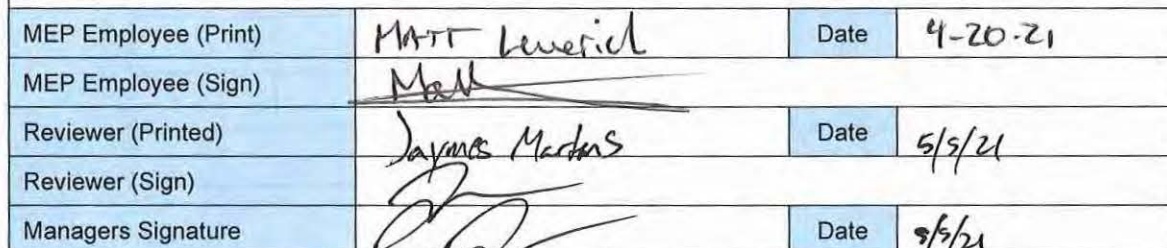 MEP Employee (Print) MATT Leverich Date 4-20-21
MEP Employee (Sign) Matt
Reviewer (Printed) Jaymes Martins Date 5/5/21
Reviewer (Sign)
Managers Signature Date 5/5/21